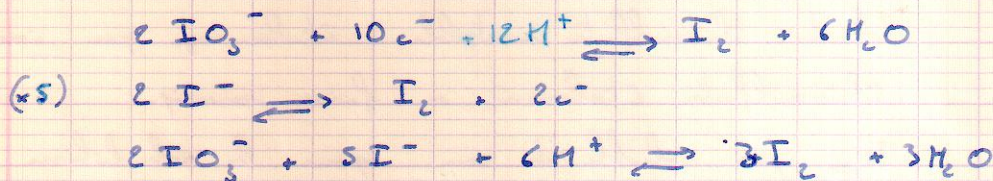 2 IO₃⁻ + 10e⁻ + 12H⁺ ⇌ I₂ + 6H₂O
(×5) 2 I⁻ ⇌ I₂ + 2e⁻
2 IO₃⁻ + 5I⁻ + 6H⁺ ⇌ 3I₂ + 3H₂O